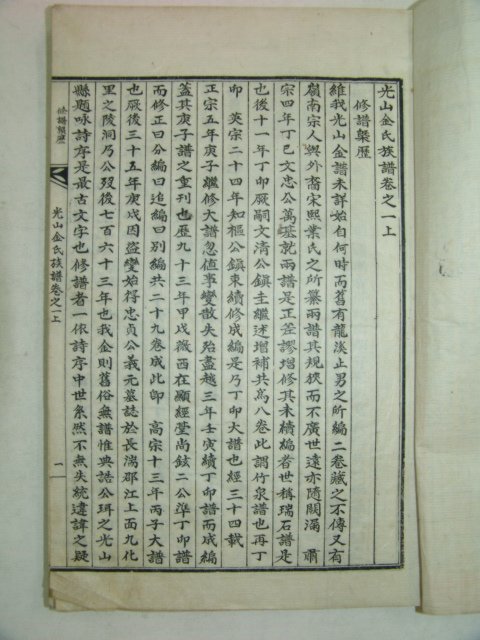 光山金氏族譜卷之一上
修譜槩歷
維我光山金譜未詳始自何時而舊有龍溪止男之所編二卷藏之不傳又有
嶺南宗人與外裔宋熙業氏之所纂兩譜其規狹而不廣世遠亦隨闕漏 肅
宗四年丁巳文忠公萬基就兩譜是正差謬增修其未續編者世稱瑞石譜是
也後十一年丁卯厥嗣文清公鎭圭繼述增補共爲八卷此謂竹泉譜也再丁
卯 英宗二十四年知樞公鎭東續修成編是乃丁卯大譜也經三十四載
正宗五年庚子繼修大譜忽值事變散失殆盡越三年壬寅續丁卯譜而成編
蓋其庚子譜之重刊也歷九十三年甲戌薇西在顯經堂尚鉉二公準丁卯譜
而修正曰分編曰追編曰別編共二十九卷成此卽 高宗十三年丙子大譜
也厥後三十五年庚戌因盜變始得忠貞公義元墓誌於長湍郡江上面九化
里之陵洞乃公歿後七百六十三年也我金則舊俗無譜惟典誥公珥之光山
縣題咏詩序是最古文字也修譜者一依詩序中世系然不無失統違諱之疑
修譜槩歷
光山金氏族譜卷之一上
一